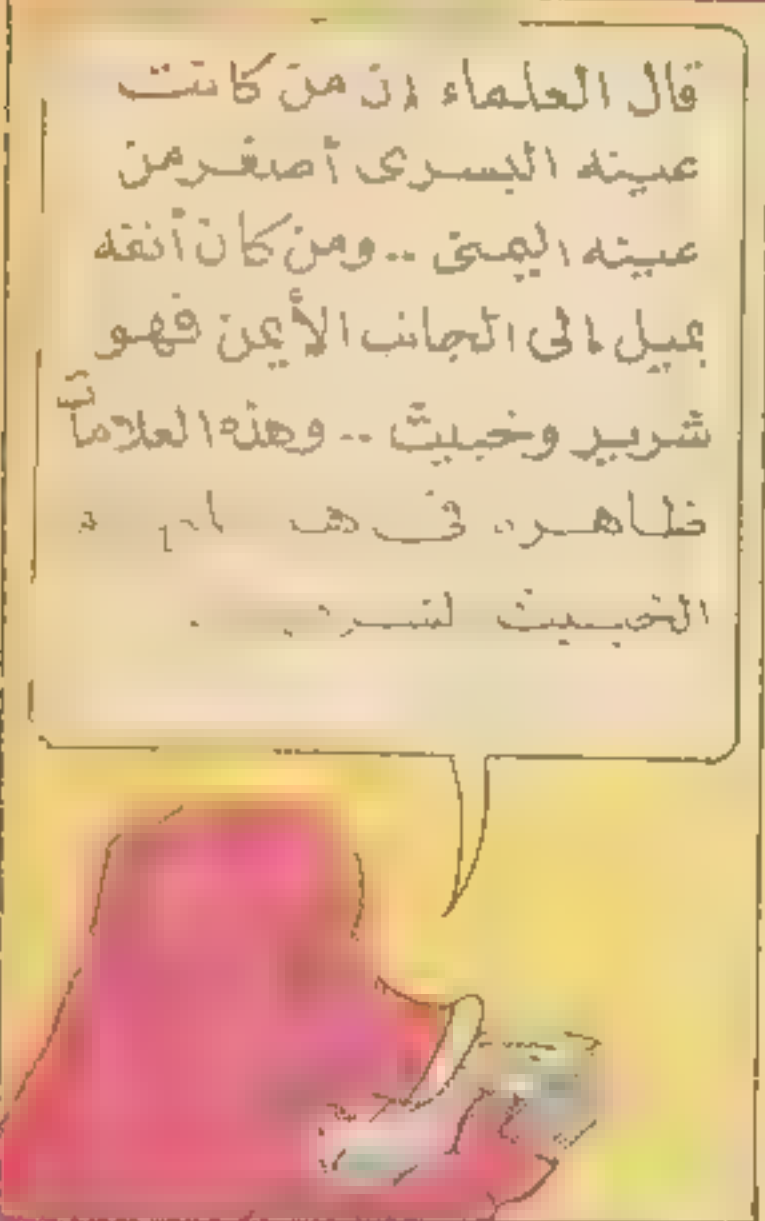 قال العلماء إن من كانت
عينه اليسرى أصغر من
عينه اليمنى .. ومن كان أنفه
يميل إلى الجانب الأيمن فهو
شرير وخبيث .. وهذه العلامات
ظاهرة في
الخبيث